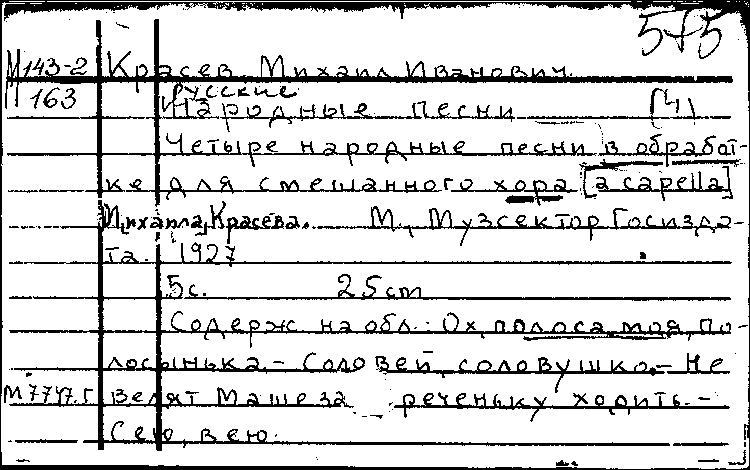 575
М 143-2 Красев, Михаил Иванович.
163 Русские
Народные песни (4)
Четыре народные песни в обработ-
ке для смешанного хора [a capella]
Михаила Красева. М., Музсектор Госизда-
та. 1927
5с. 25cm
Содерж на обл.: Ох, полоса моя, по-
лосынька. – Соловей, соловушко. – Не
М 7747. г велят Маше за реченьку ходить. –
Сею, вею.